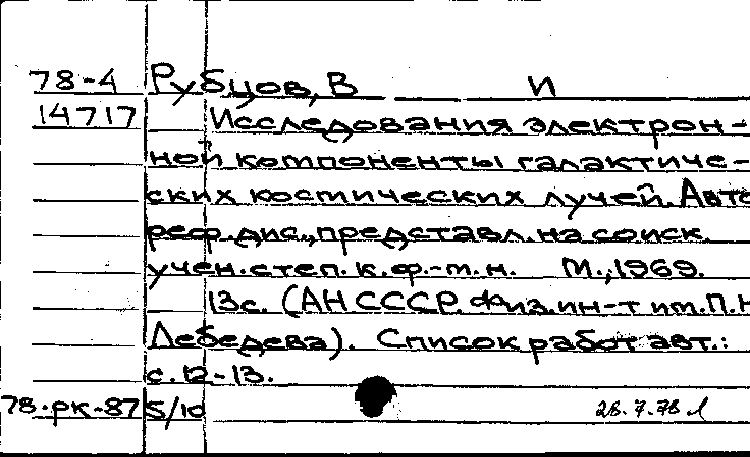 78-4 Рубцов, В И
14717 Исследования электрон-
ной компоненты галактиче-
ских космических лучей. Авто
реф. дис., представл. на соиск.
учен. степ. к. ф.-м. н. М., 1969.
13 с. (АН СССР. Физ. ин-т им. П. Н
Лебедева). Список работ авт.:
с. 12-13.
78-рк-87 5/10 28.7.78